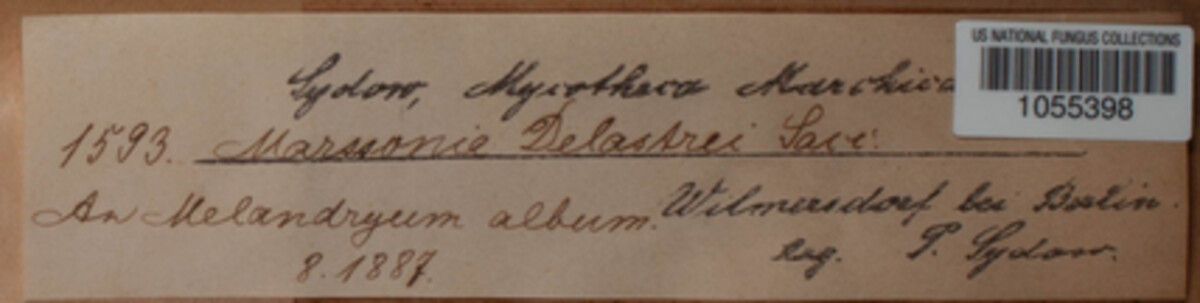 US NATIONAL FUNGUS COLLECTIONS
1055398
Sydow, Mycotheca Marchica
1593. Marssonia Delastrei Sacc.
An Melandryum album. Wilmersdorf bei Berlin.
8. 1887. leg. P. Sydow.